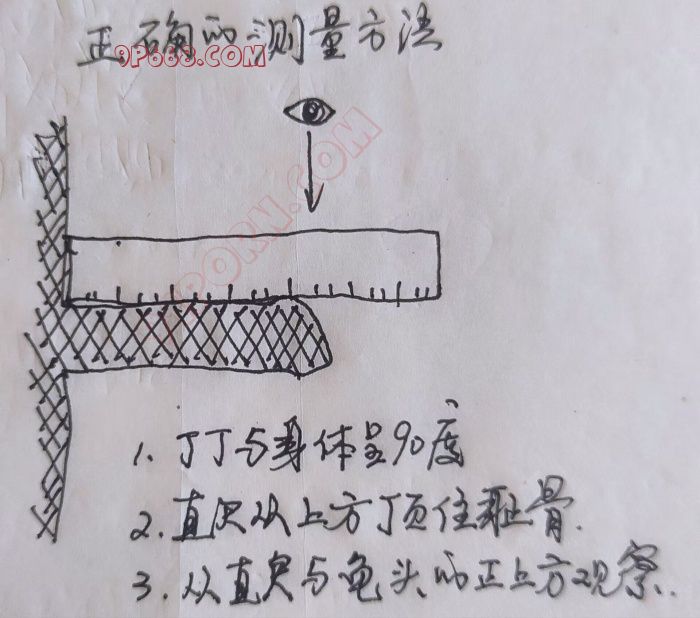 正确的测量方法
9P668.COM
PORN.COM
1. 丁丁与身体呈90度
2. 直尺从上方顶住耻骨.
3. 从直尺与龟头的正上方观察.